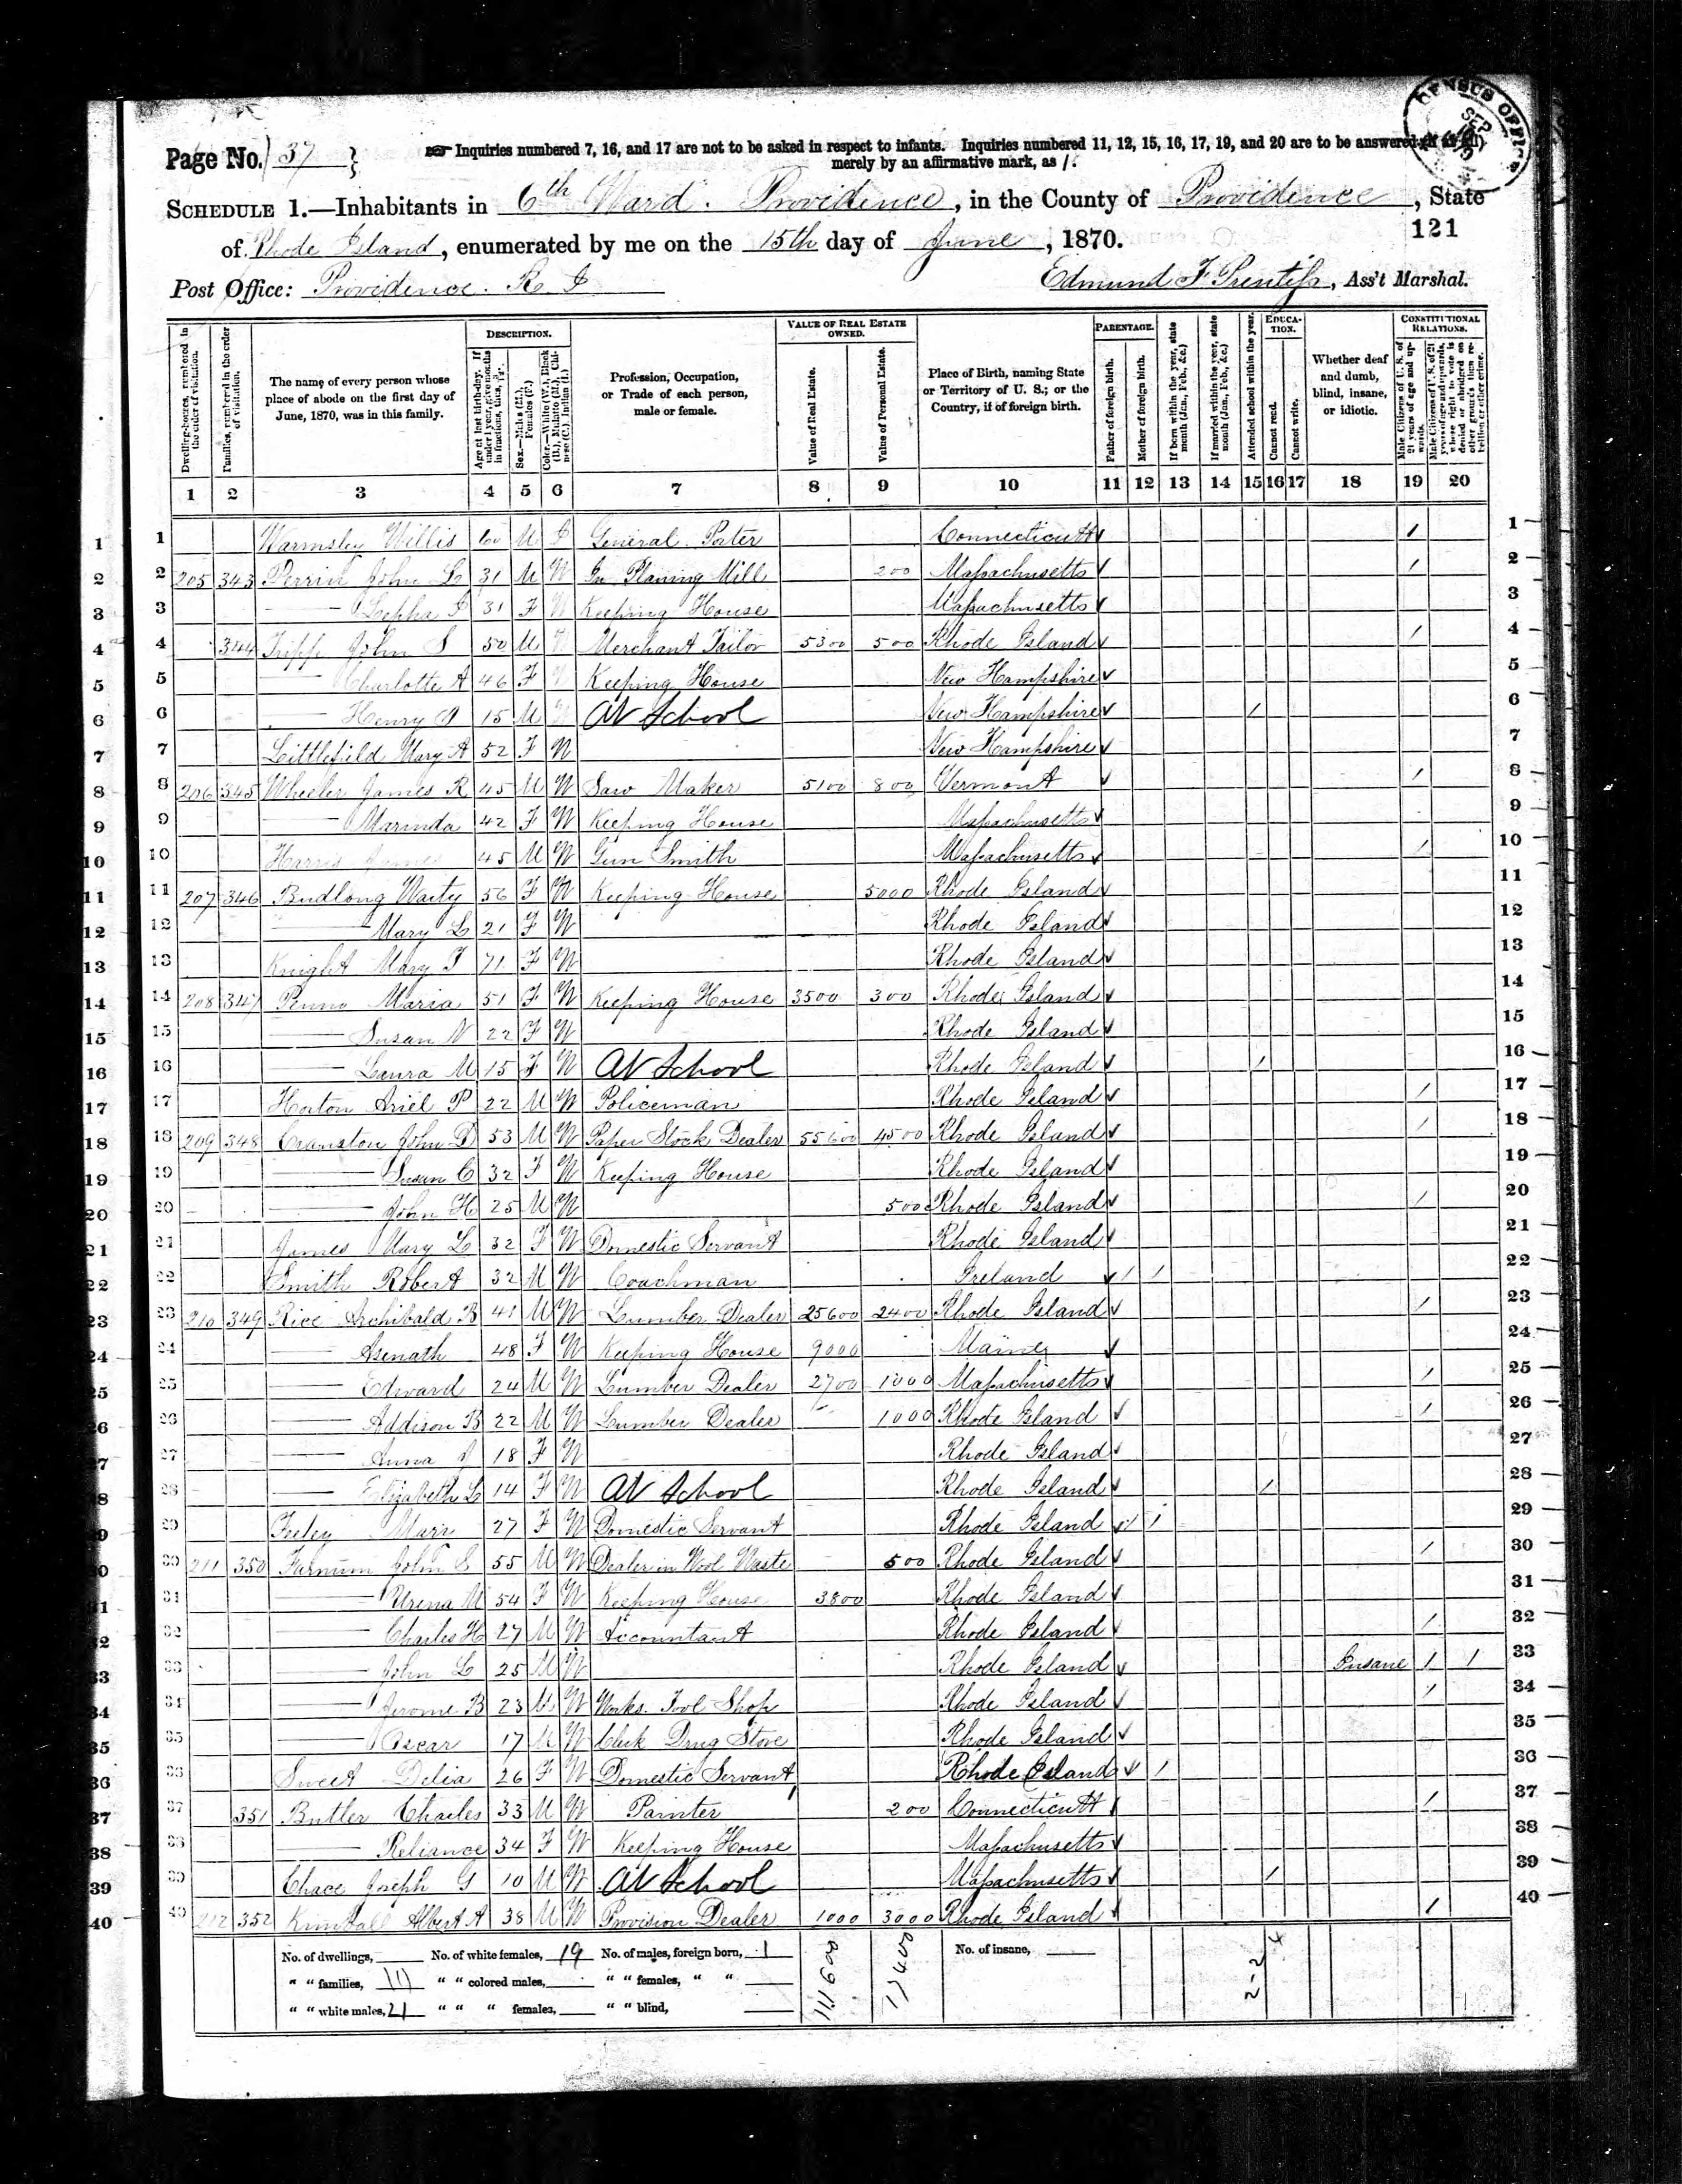 Page No. 37
☞ Inquiries numbered 7, 16, and 17 are not to be asked in respect to infants. Inquiries numbered 11, 12, 15, 16, 17, 19, and 20 are to be answered (if at all)
merely by an affirmative mark, as /.
CENSUS OFFICE SEP
SCHEDULE 1.—Inhabitants in 6th Ward. Providence, in the County of Providence, State
of Rhode Island, enumerated by me on the 15th day of June, 1870.
121
Post Office: Providence. R. I
Edmund F. Prentiss, Ass't Marshal.
Dwelling-houses, numbered in the order of visitation.
Families, numbered in the order of visitation.
The name of every person whose place of abode on the first day of June, 1870, was in this family.
DESCRIPTION.
Age at last birth-day. If under 1 year, give months in fractions, thus, 3/12.
Sex.—Males (M.), Females (F.)
Color.—White (W.), Black (B.), Mulatto (M.), Chinese (C.), Indian (I.)
Profession, Occupation, or Trade of each person, male or female.
VALUE OF REAL ESTATE OWNED.
Value of Real Estate.
Value of Personal Estate.
Place of Birth, naming State or Territory of U. S.; or the Country, if of foreign birth.
PARENTAGE.
Father of foreign birth.
Mother of foreign birth.
If born within the year, state month (Jan., Feb., &c.)
If married within the year, state month (Jan., Feb., &c.)
Attended school within the year.
EDUCATION.
Cannot read.
Cannot write.
Whether deaf and dumb, blind, insane, or idiotic.
CONSTITUTIONAL RELATIONS.
Male Citizens of U. S. of 21 years of age and upwards.
Male Citizens of U. S. of 21 years of age and upwards, whose right to vote is denied or abridged on other grounds than rebellion or other crime.
1 2 3 4 5 6 7 8 9 10 11 12 13 14 15 16 17 18 19 20
1 Warmsley Willis M I General Porter Connecticutt /
2 205 343 John L 31 M W In Planing Mill 200 Massachusetts /
3 —— 31 F W Keeping House Massachusetts
4 344 Tripp John S 50 M W Merchant Tailor 5300 500 Rhode Island /
5 —— Charlotte A 46 F W Keeping House New Hampshire
6 —— Henry 15 M W At School New Hampshire /
7 Littlefield Mary A 52 F W New Hampshire
8 206 345 Wheeler James R 45 M W Saw Maker 5100 800 Vermont /
9 —— Marinda 42 F W Keeping House Massachusetts
10 Harris James 45 M W Gun Smith Massachusetts /
11 207 346 Budlong Waity 56 F W Keeping House 5000 Rhode Island
12 —— Mary L 21 F W Rhode Island
13 Knight Mary T 71 F W Rhode Island
14 208 347 Maria 51 F W Keeping House 3500 300 Rhode Island
15 —— Susan N 22 F W Rhode Island
16 —— Laura M 15 F W At School Rhode Island /
17 Horton Ariel P 22 M W Policeman Rhode Island /
18 209 348 Cranston John D 53 M W Paper Stock Dealer 55600 4500 Rhode Island /
19 —— Susan C 32 F W Keeping House Rhode Island
20 —— John H 25 M W 500 Rhode Island /
21 James Mary L 32 F W Domestic Servant Rhode Island
22 Smith Robert 32 M W Coachman Ireland / /
23 210 349 Rice Archibald B 41 M W Lumber Dealer 25600 2400 Rhode Island /
24 —— Asenath 48 F W Keeping House 9000 Maine
25 —— Edward 24 M W Lumber Dealer 2700 1000 Massachusetts /
26 —— Addison B 22 M W Lumber Dealer 1000 Rhode Island /
27 —— Anna 18 F W Rhode Island
28 —— Elizabeth L 14 F W At School Rhode Island /
29 Feeley Mary 27 F W Domestic Servant Rhode Island / /
30 211 350 Farnum John S 55 M W Dealer in Wool Waste 500 Rhode Island /
31 —— Urena M 54 F W Keeping House 3800 Rhode Island
32 —— Charles H 27 M W Accountant Rhode Island /
33 —— John L 25 M W Rhode Island Insane / /
34 —— Jerome B 23 M W Works. Tool Shop Rhode Island /
35 —— Oscar 17 M W Clerk Drug Store Rhode Island
36 Sweet Delia 26 F W Domestic Servant Rhode Island /
37 351 Butler Charles 33 M W Painter 200 Connecticutt /
38 —— Reliance 34 F W Keeping House Massachusetts
39 Chace Joseph G 10 M W At School Massachusetts /
40 212 352 Kimball Albert A 38 M W Provision Dealer 1000 3000 Rhode Island /
No. of dwellings, No. of white females, 19 No. of males, foreign born, 1 No. of insane,
" " families, " " colored males, " " females, " "
" " white males, 21 " " " females, " " blind,
111600